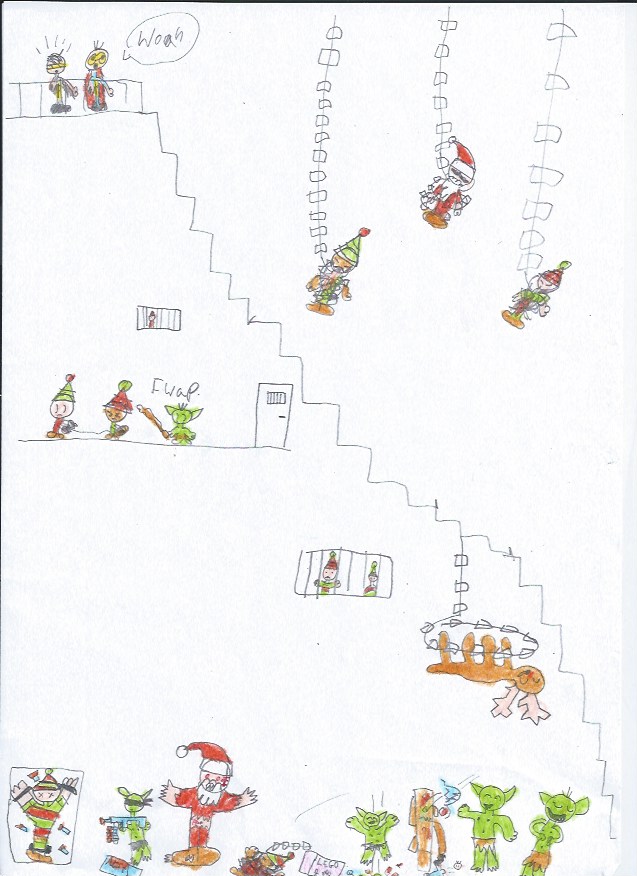 Woah
Fwap.
LEGO